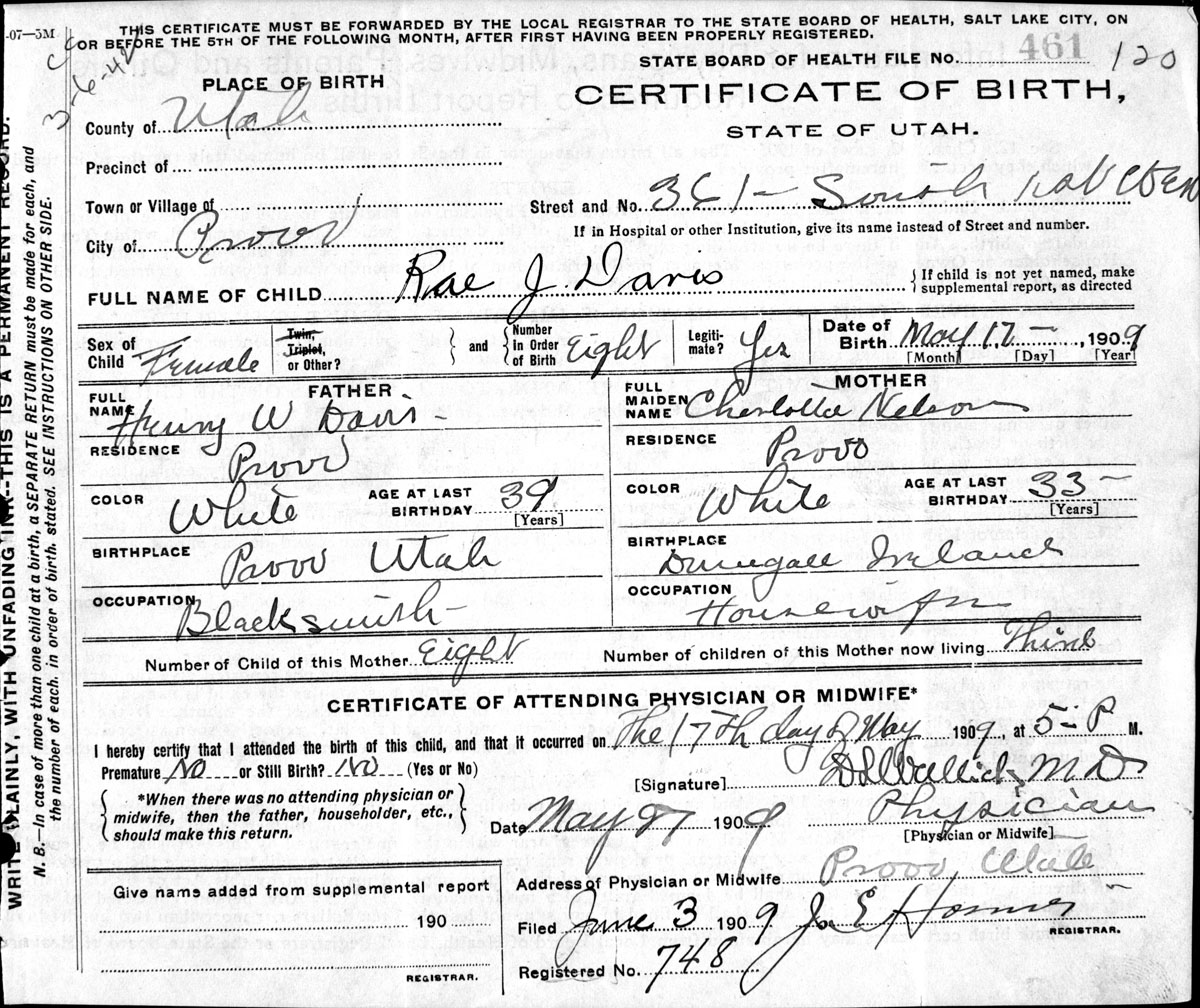 -07-5M
THIS CERTIFICATE MUST BE FORWARDED BY THE LOCAL REGISTRAR TO THE STATE BOARD OF HEALTH, SALT LAKE CITY, ON
OR BEFORE THE 5TH OF THE FOLLOWING MONTH, AFTER FIRST HAVING BEEN PROPERLY REGISTERED.
STATE BOARD OF HEALTH FILE No. 461 120
PLACE OF BIRTH
CERTIFICATE OF BIRTH,
STATE OF UTAH.
County of Utah
Precinct of
Town or Village of
Street and No. 361 - South
City of Provo
If in Hospital or other Institution, give its name instead of Street and number.
FULL NAME OF CHILD Rae J. Davis
If child is not yet named, make
supplemental report, as directed
Sex of Child Female
Twin, Triplet, or Other?
and Number in Order of Birth Eight
Legitimate? Yes
Date of Birth May 17 - , 1909
[Month] [Day] [Year]
FATHER
MOTHER
FULL NAME Henry W Davis -
FULL MAIDEN NAME Charlotte Nelson
RESIDENCE Provo
RESIDENCE Provo
COLOR White AGE AT LAST BIRTHDAY 39 [Years]
COLOR White AGE AT LAST BIRTHDAY 33 - [Years]
BIRTHPLACE Provo Utah
BIRTHPLACE Ireland
OCCUPATION Blacksmith
OCCUPATION Housewife
Number of Child of this Mother Eight
Number of children of this Mother now living
CERTIFICATE OF ATTENDING PHYSICIAN OR MIDWIFE*
I hereby certify that I attended the birth of this child, and that it occurred on The 17th day of May 1909, at 5 - P M.
Premature No or Still Birth? No (Yes or No)
[Signature] M D
*When there was no attending physician or
midwife, then the father, householder, etc.,
should make this return.
Date May 27 1909 Physician
[Physician or Midwife]
Address of Physician or Midwife Provo Utah
Give name added from supplemental report
190
REGISTRAR.
Filed June 3 1909
REGISTRAR.
Registered No. 748
WRITE PLAINLY, WITH UNFADING INK--THIS IS A PERMANENT RECORD.
N. B.—In case of more than one child at a birth, a SEPARATE RETURN must be made for each, and
the number of each, in order of birth, stated. SEE INSTRUCTIONS ON OTHER SIDE.